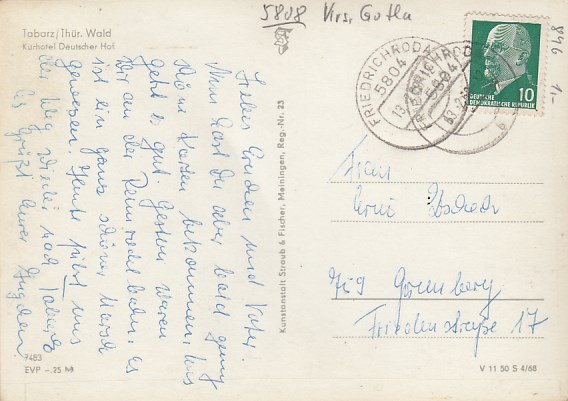 5808 Krs. Gotha
Tabarz/Thür. Wald
Kurhotel Deutscher Hof
Liebes Ernchen und Vater.
Nun hast du aber bald genug
Karten bekommen. Uns
geht es gut. Gestern waren
wir an der Rennrodelbahn. Es
ist ein ganz schöner Marsch
gewesen. Heute führt uns
der Weg wieder nach Tabarz
Es grüßt euer
7483
EVP -.25 M
Kunstanstalt Straub & Fischer, Meiningen, Reg.-Nr. 23
FRIEDRICHRODA
5804
FRIEDRICHRODA
5804
DEUTSCHE
DEMOKRATISCHE REPUBLIK
10
846
1.-
Frau
Erni
719 Grünberg
Friedenstraße 17
V 11 50 S 4/68